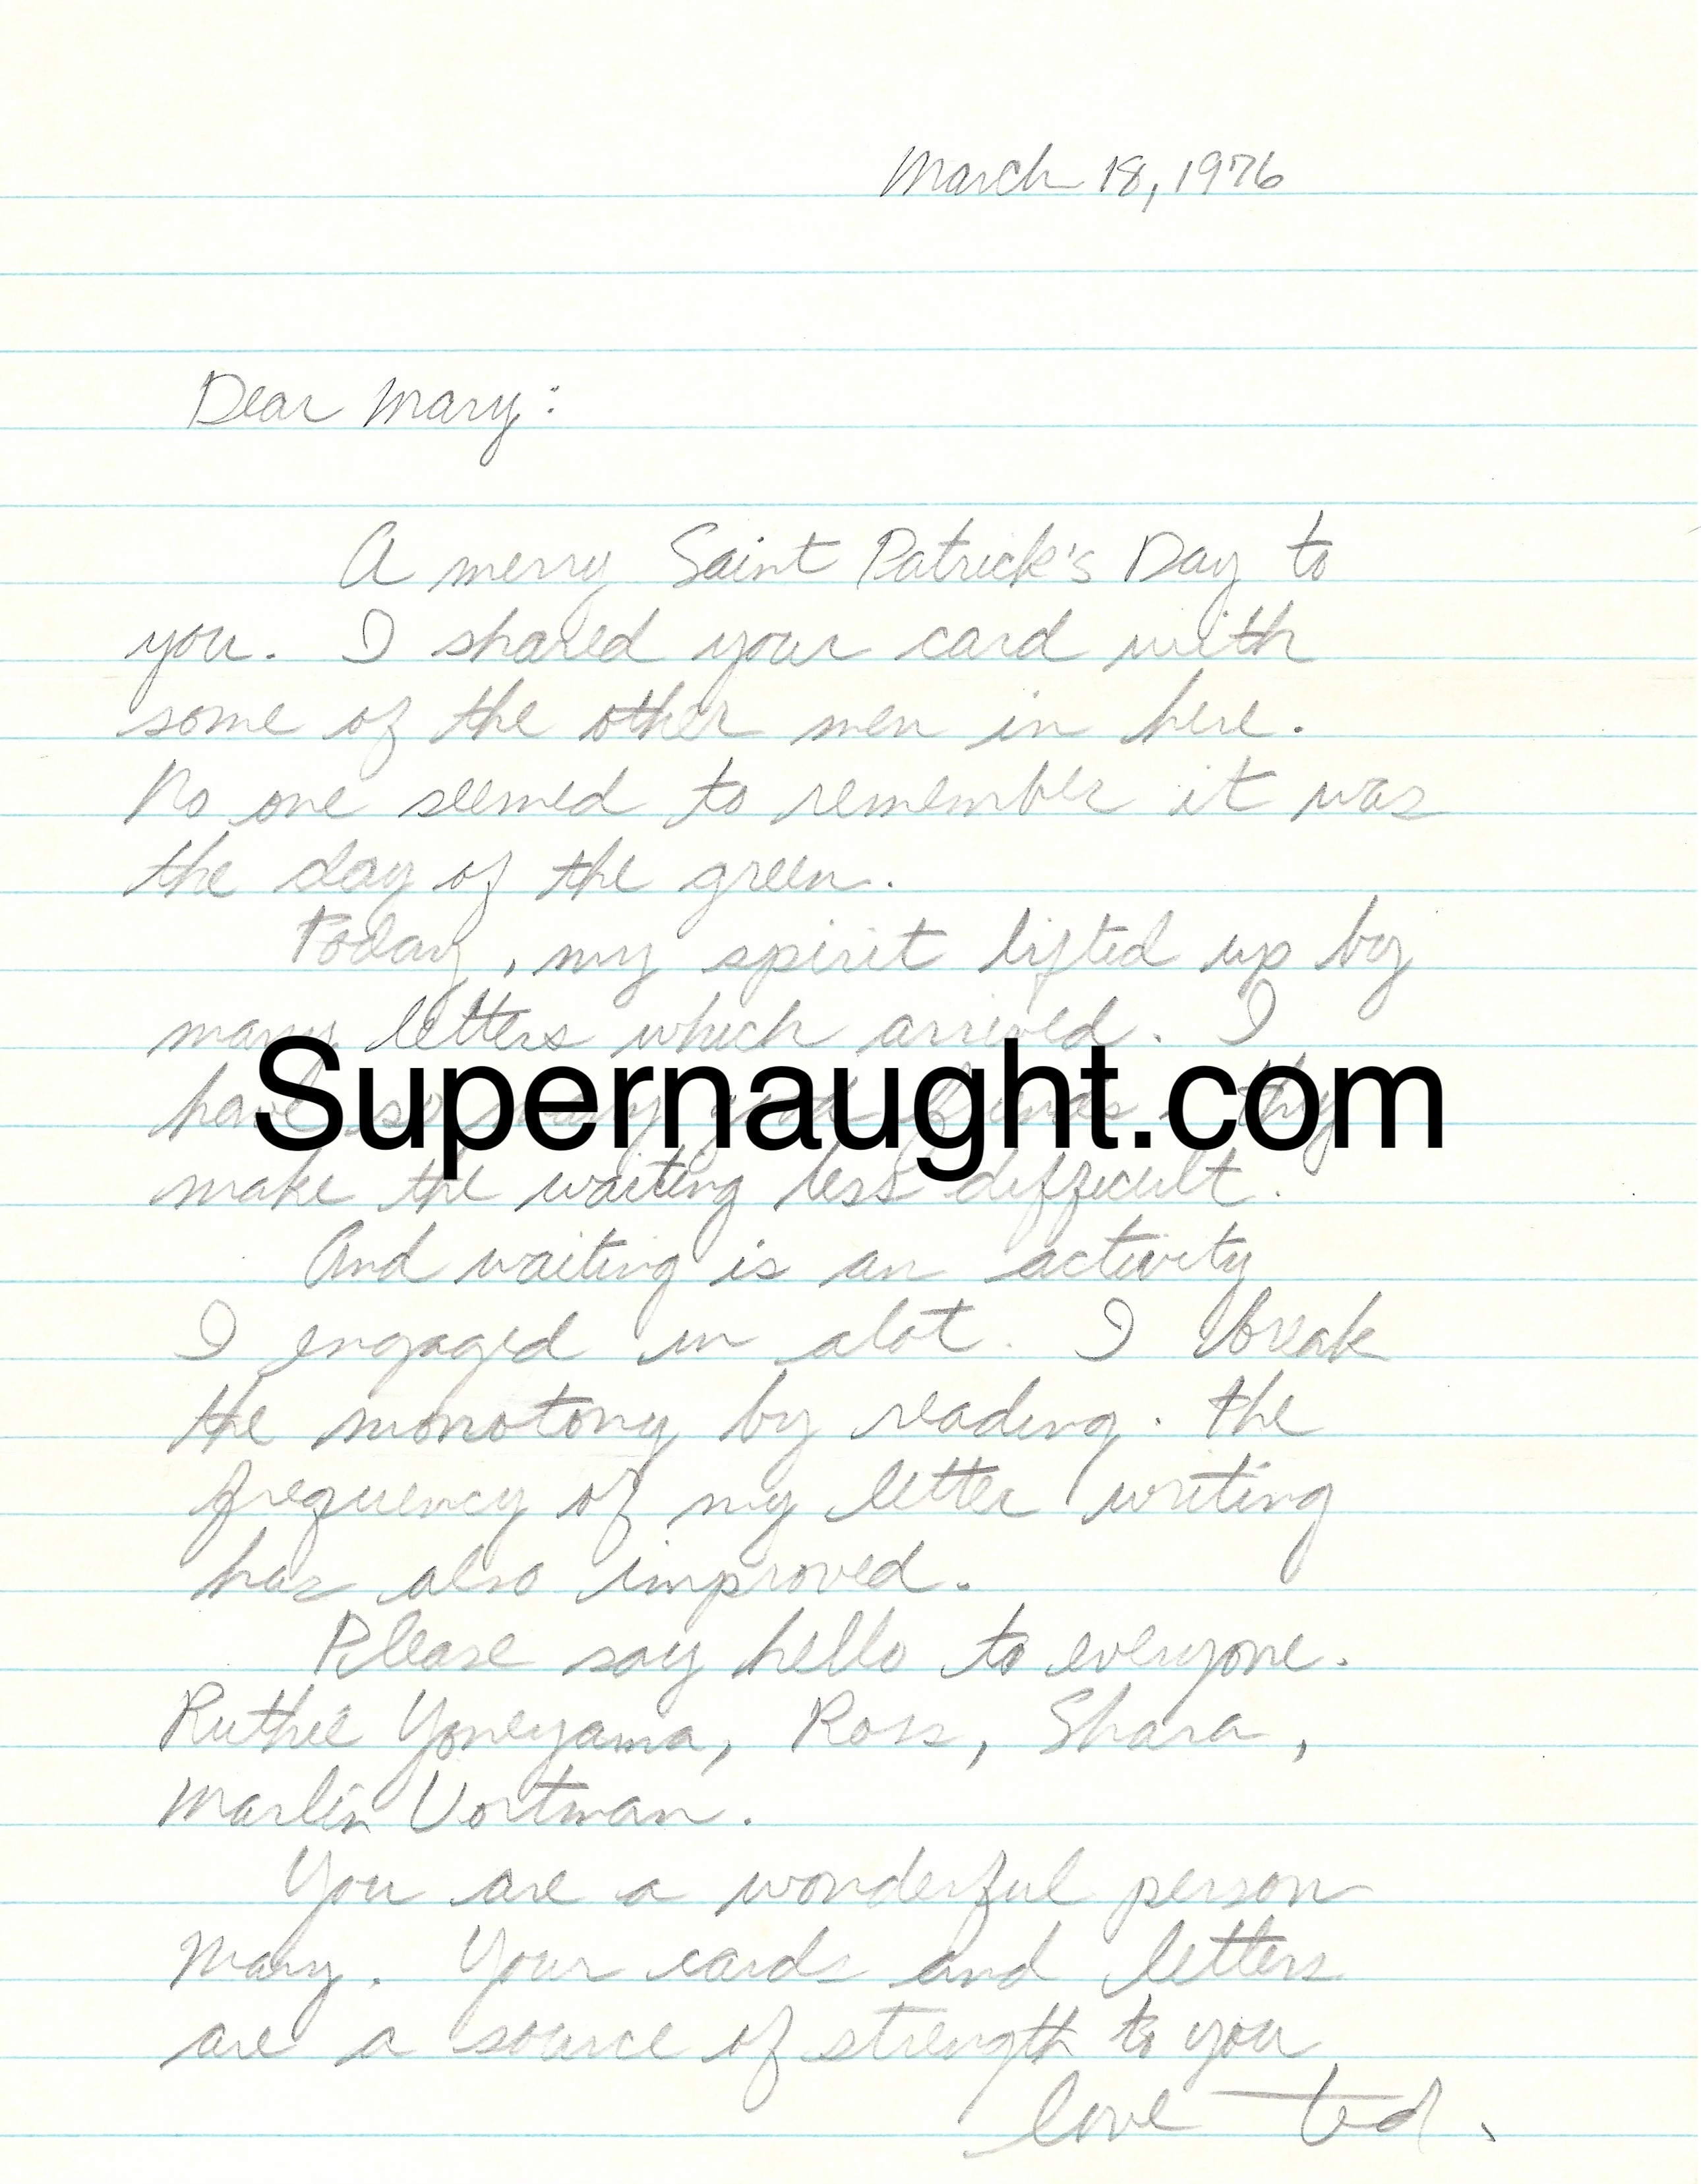 March 18, 1976
Dear Mary:
A merry Saint Patrick's Day to
you. I shared your card with
some of the other men in here.
No one seemed to remember it was
the day of the green.
Today, my spirit lifted up by
many letters which arrived. I
have so many good friends. They
Supernaught.com
make the waiting less difficult.
And waiting is an activity
I engaged in alot. I break
the monotony by reading. The
frequency of my letter writing
has also improved.
Please say hello to everyone.
Ruthie Yoneyama, Ross, Shara,
Marlin Vortman.
You are a wonderful person
Mary. Your cards and letters
are a source of strength to you
love ted.